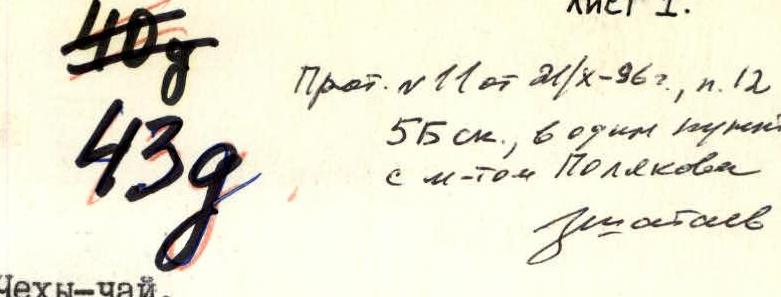 Лист 1.
40g
43g
Прот. №11 от 21/X-96г., п.12
5Б ск., в один пункт
с м-том Полякова
Чехы-чай.